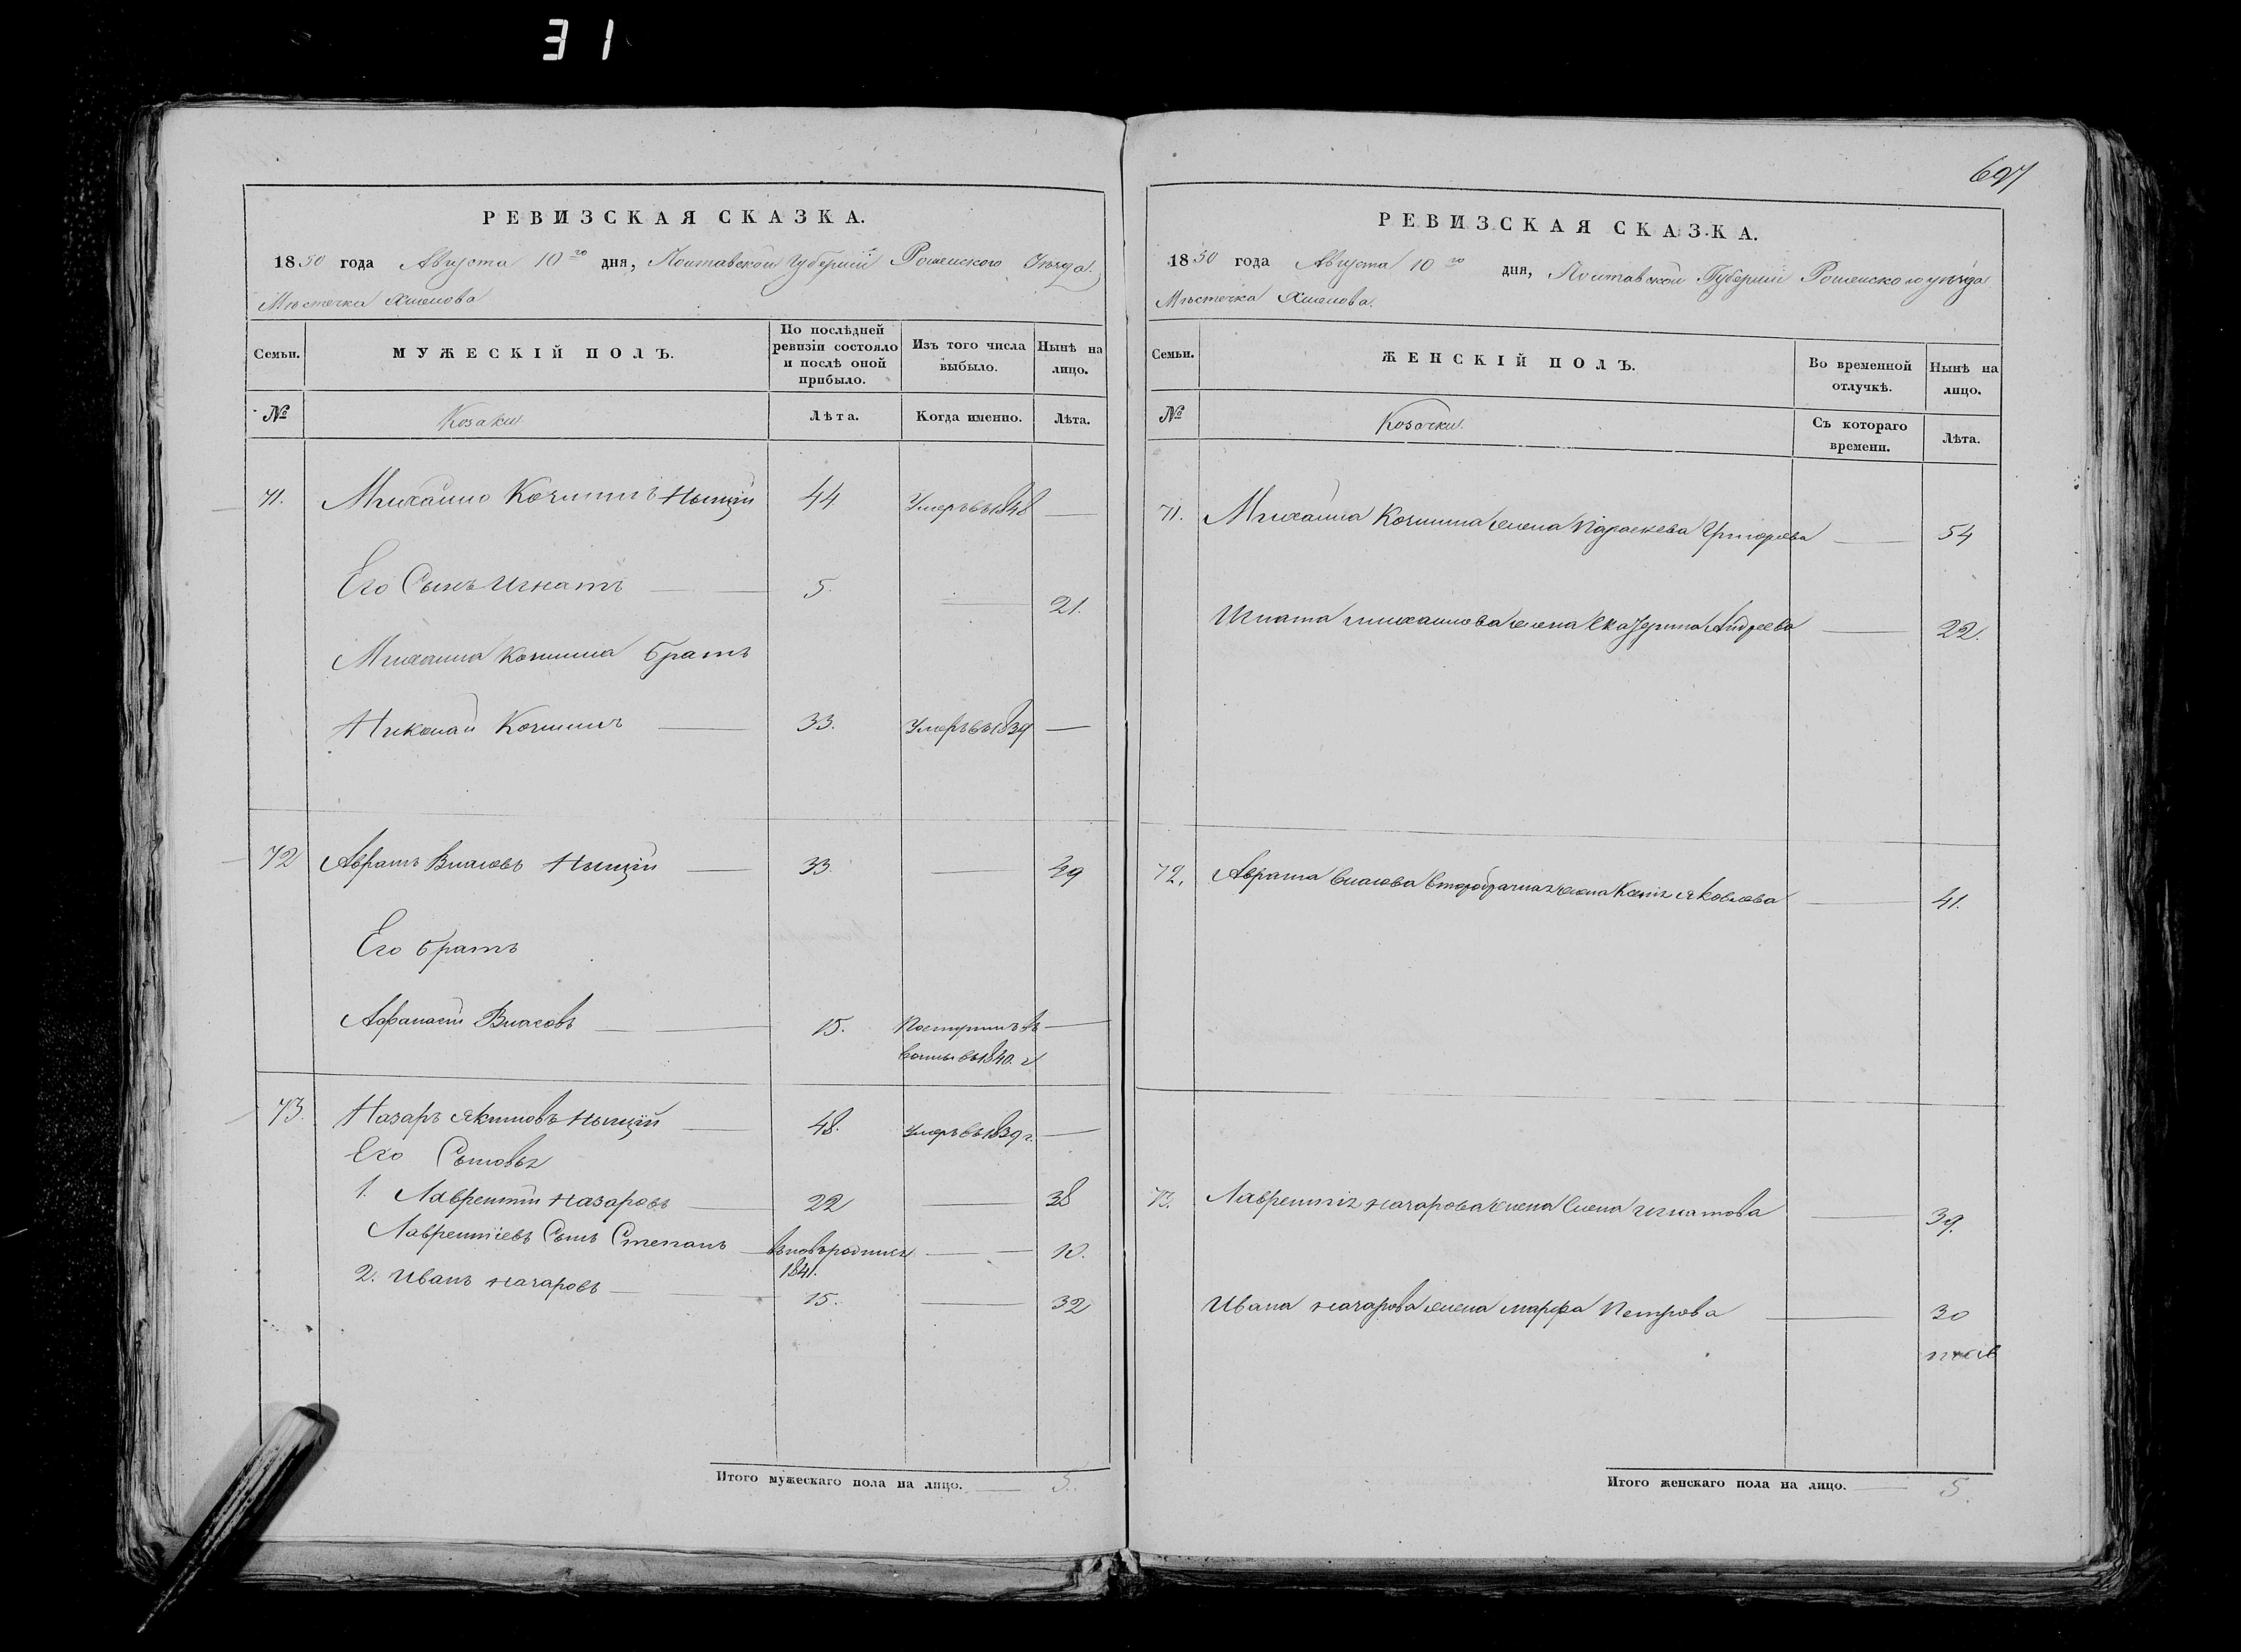 31
697
РЕВИЗСКАЯ СКАЗКА.
1850 года Августа 10го дня, Полтавской Губерніи Роменского Уѣзда.
Мѣстечка
Семьи.
МУЖЕСКІЙ ПОЛЪ.
По послѣдней ревизіи состояло и послѣ оной прибыло.
Изъ того числа выбыло.
Нынѣ на лицо.
№
Козаки.
Лѣта.
Когда именно.
Лѣта.
71. Михайло 44 Умеръ въ 1848 —
Его Сынъ Игнатъ — 5. — 21.
Михаила братъ
Николай — 33. Умеръ въ 1839 —
72 Власовъ — 33. — 49
Его братъ
Афанасій Власовъ — 15. Поступилъ въ —
въ 1840. г
73. Назаръ Якимовъ — 48. Умеръ въ 1839 г. —
Его Сыновья
1. Лаврентій Назаровъ — 22 — 38
Лаврентіевъ Сынъ Степанъ — 10.
1841.
2. Иванъ Назаровъ — 15. — 32
Итого мужескаго пола на лицо. — 5.
РЕВИЗСКАЯ СКАЗКА.
1850 года Августа 10го дня, Полтавской Губерніи Роменского уѣзда
Мѣстечка
Семьи.
ЖЕНСКІЙ ПОЛЪ.
Во временной отлучкѣ.
Нынѣ на лицо.
№
Козачки.
Съ котораго времени.
Лѣта.
71. Михаила жена Параскева Григорьева — 54
Игната Михайлова жена Екатерина Андреева — 22.
72. Власова второбрачная жена Ксенія Яковлева — 41.
73. Лаврентія Назарова жена Елена Игнатова — 39.
Ивана Назарова жена Марфа Петрова — 30
Итого женскаго пола на лицо. — 5.